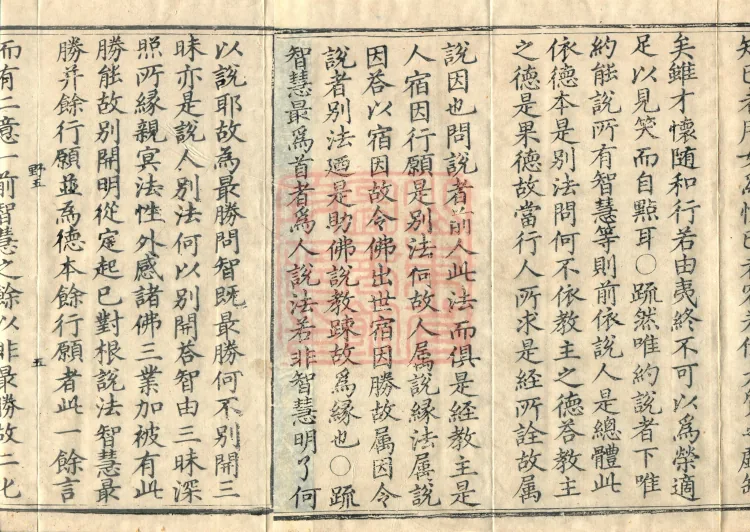 矣雖才懷隨和行若由夷終不可以爲榮適
足以見笑而自點耳○䟽然唯約說者下唯
約能說所有智慧等則前依說人是總體此
依德本是別法問何不依教主之德荅教主
之德是果德故當行人所求是經所詮故属
說因也問說者前人此法而俱是經教主是
人宿因行願是別法何故人属說緣法属說
因荅以宿因故令佛出世宿因勝故属因令
說者別法廼是助佛說教踈故爲緣也○䟽
智慧最爲首者爲人說法若非智慧明了何
以說耶故爲最勝問智既最勝何不別開三
昧亦是說人別法何以別開荅智由三昧深
照所緣親冥法性外感諸佛三業加被有此
勝能故別開明從定起已對根說法智慧最
勝并餘行願並爲德本餘行願者此一餘言
野五
五
而有二意一前智慧之餘以非最勝故二七